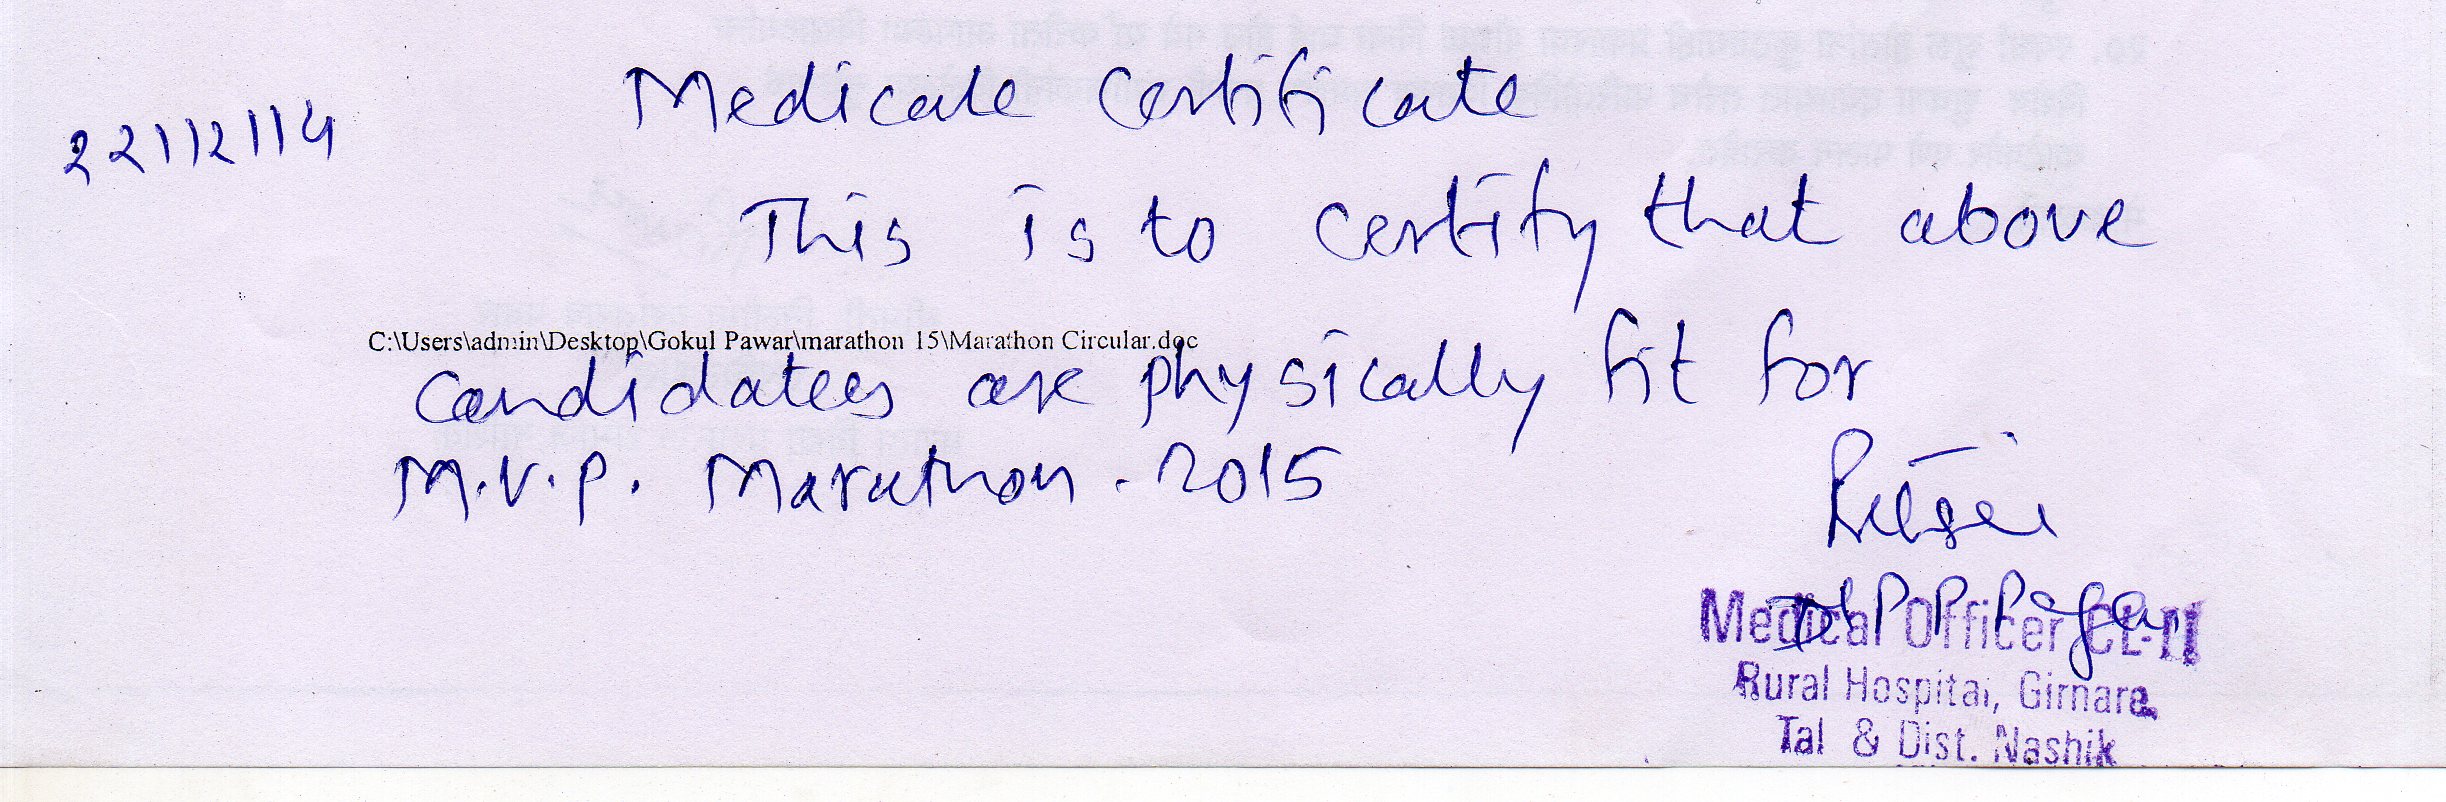 Medicale Certificate
22/12/14
This is to certify that above
C:\Users\admin\Desktop\Gokul Pawar\marathon 15\Marathon Circular.doc
candidatees are physically fit for
M.V.P. Marathon - 2015
Dr P P Pagar
Medical Officer CL-II
Rural Hospital, Girnare
Tal & Dist. Nashik